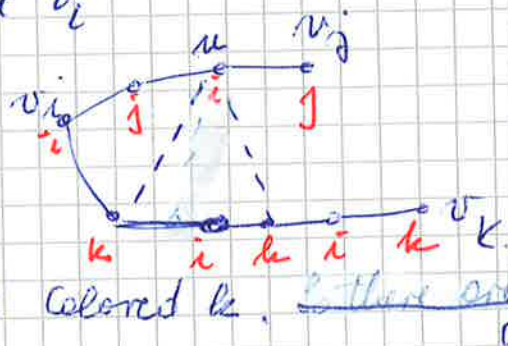 v_i
u v_j
v_i j i j
i
k i k i k v_k
Colored k.